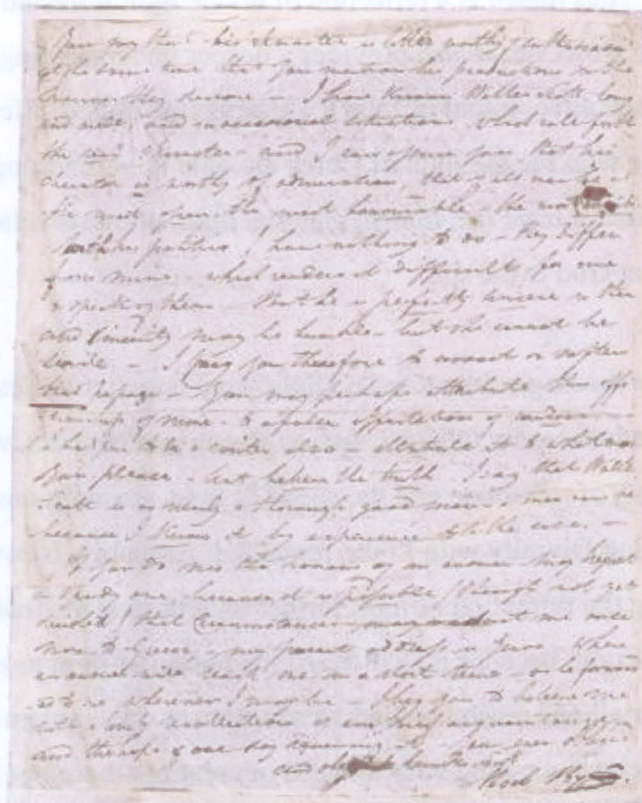 You say that his character is little worthy of enthusiasm
at the same time that you mention his productions in the
manner they deserve – I have known Walter Scott long
and well, and in occasional situations which call forth
the real character – and I can assure you that his
character is worthy of admiration, that of all men he is
the most open, the most honourable, the most
With his politics I have nothing to do – they differ
from mine – which renders it difficult for me
to speak of them – But he is perfectly sincere in them
and Sincerity may be humble – but she cannot be
servile – I pray you therefore to correct or soften
that passage – You may perhaps attribute this
of mine to a false affectation of candour
as I happen to be a writer also – Attribute it to what
you please – but believe the truth I say that Walter
Scott is as nearly a thorough good man as man can be
because I know it by experience to be the case. –
If you do me the honour of an answer may I request
a speedy one, because it is possible (though not yet
decided) that Circumstances may conduct me once
more to Greece – my present address is Genoa where
an answer will reach me in a short time – or be forwarded
to me wherever I may be – I beg you to believe me
with a lively recollection of our brief acquaintance
and the hope of one day renewing it – your ever obliged
and obedient humble servt
Noel Byron